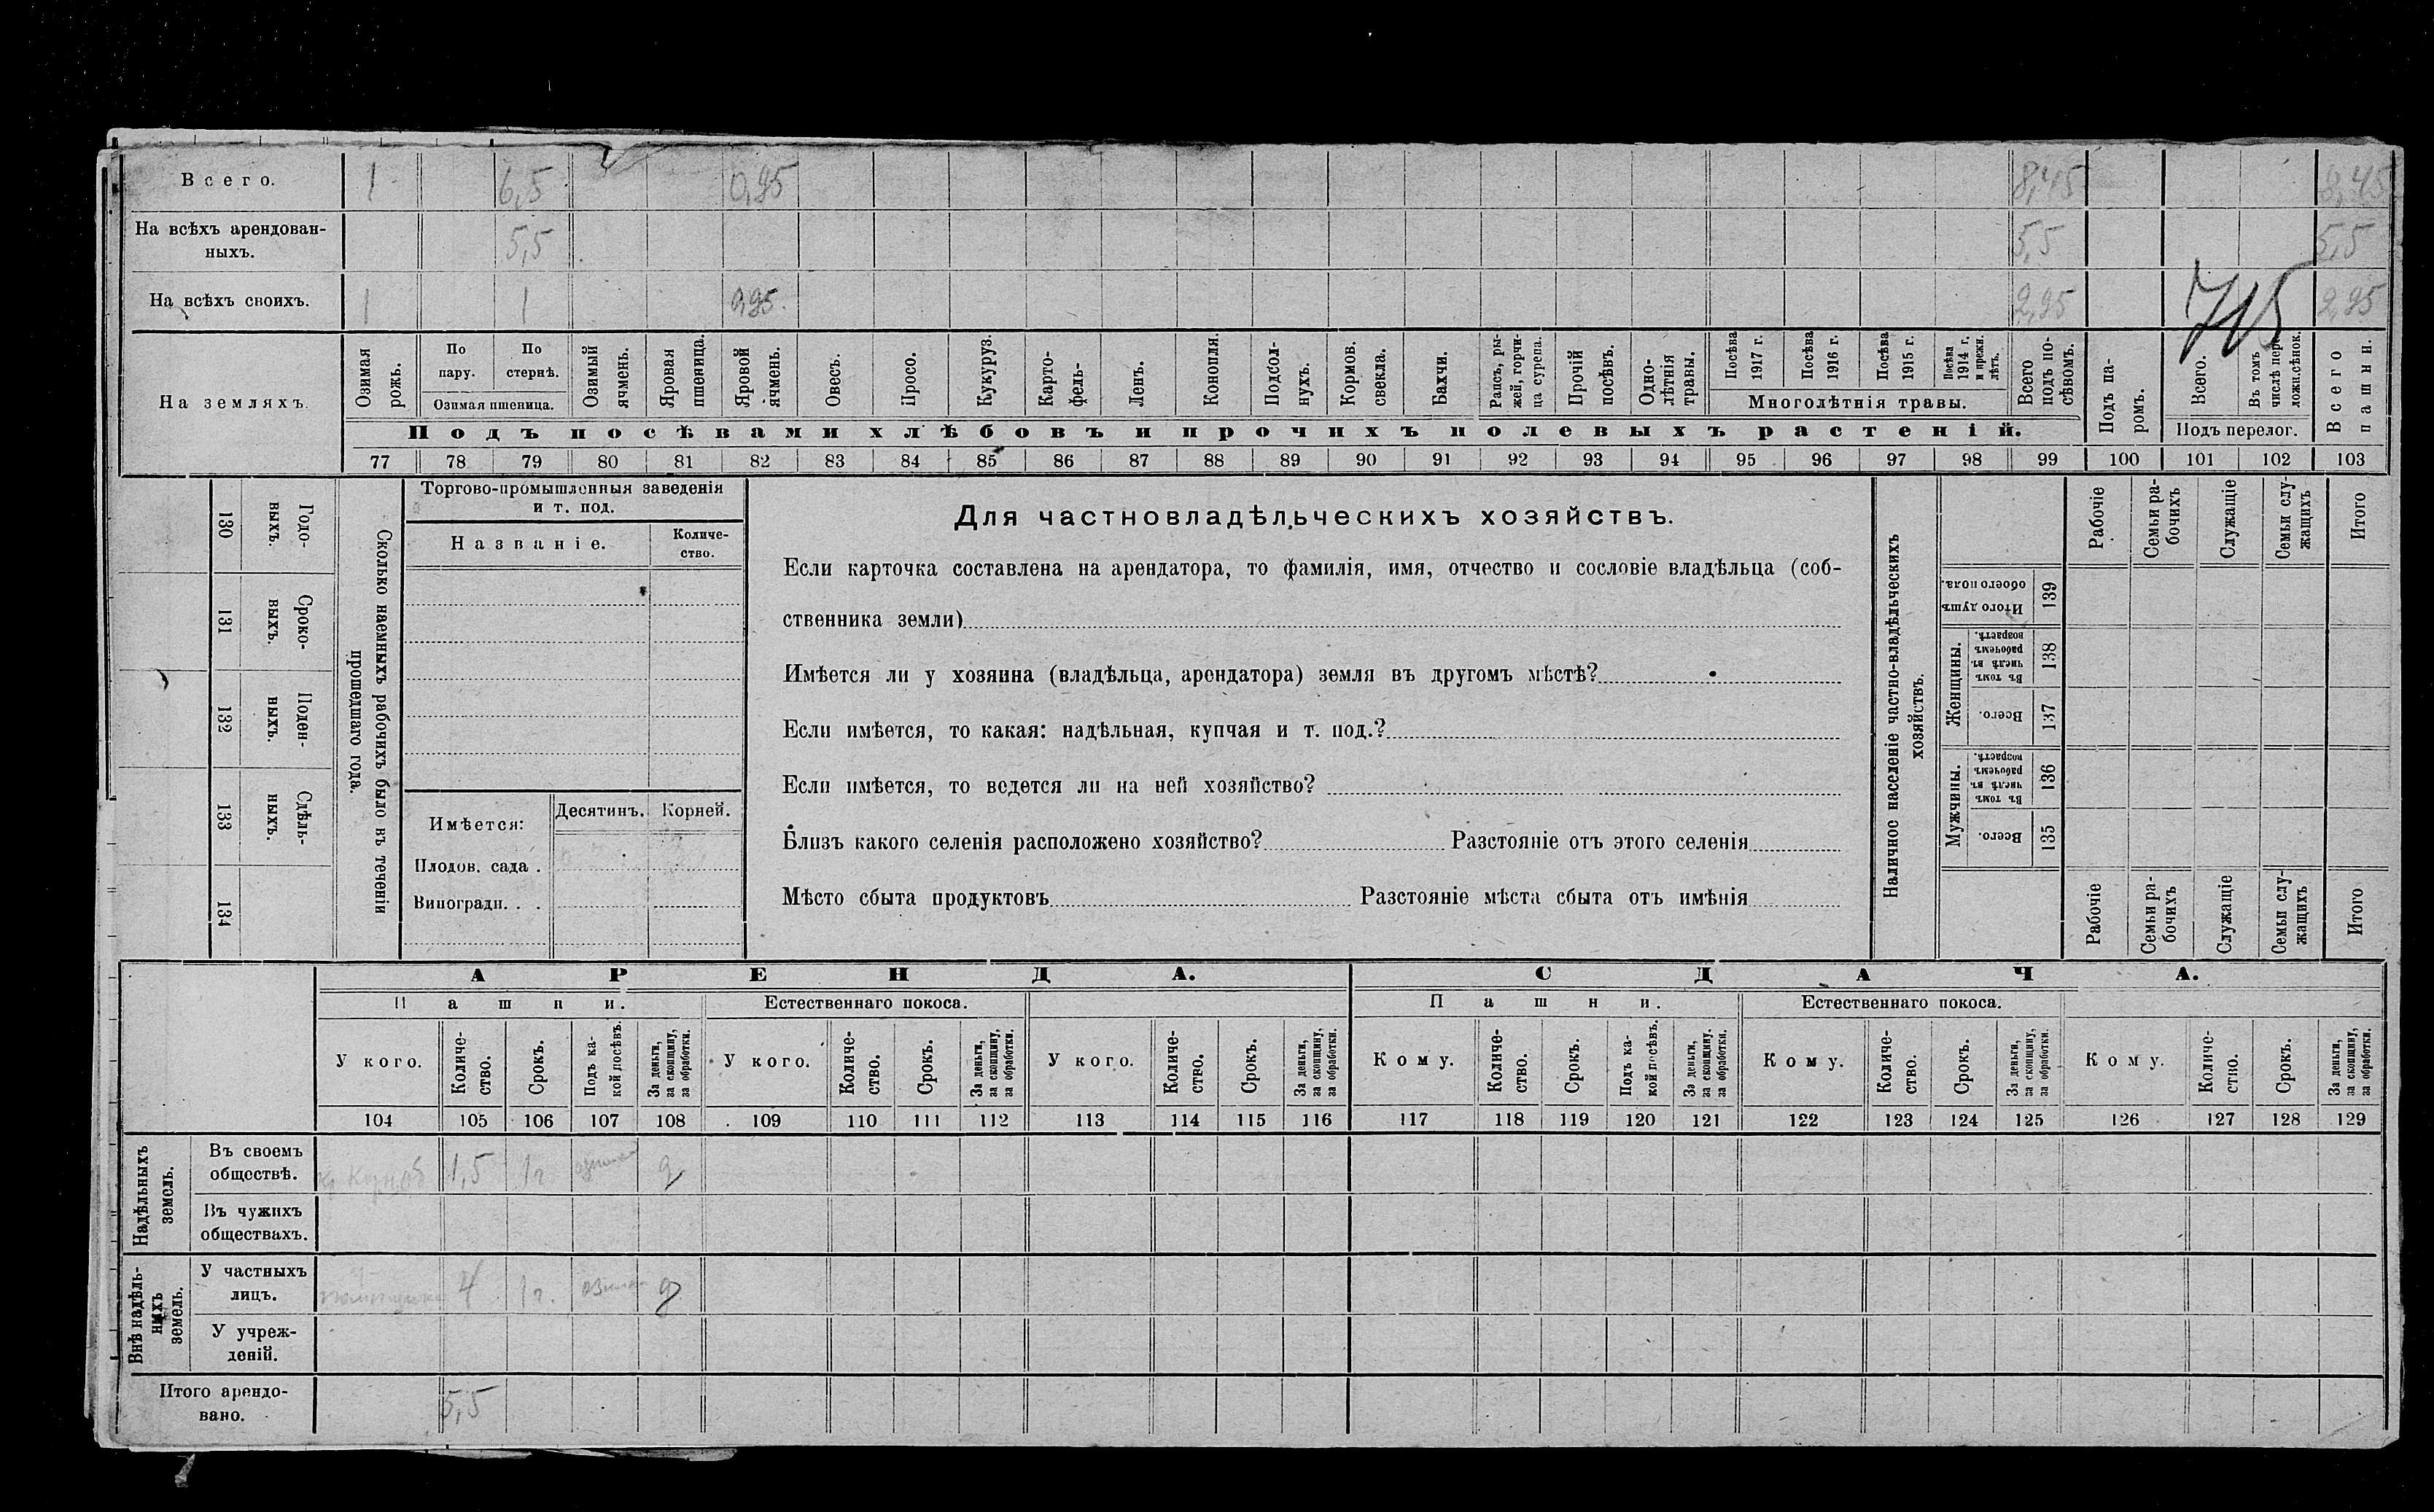 Всего. 1 6,5 0,95 8,45 8,45
На всѣхъ арендован-
ныхъ. 5,5 5,5 5,5
На всѣхъ своихъ. 1 1 0,95 2,95 2,95
715
На земляхъ.
Озимая рожь.
По пару.
По стернѣ.
Озимая пшеница.
Озимый ячмень.
Яровая пшеница.
Яровой ячмень.
Овесъ.
Просо.
Кукуруз.
Карто-
фель-
Ленъ.
Конопля.
Подсол-
нухъ.
Кормов. свекла.
Бахчи.
Рапсъ, ры-
жей, горчи-
ца сурепа.
Прочій посѣвъ.
Одно-
лѣтнія
травы.
Посѣва 1917 г.
Посѣва 1916 г.
Посѣва 1915 г.
Посѣва 1914 г. и прежн. лѣтъ.
Многолѣтнія травы.
Всего подъ по-
сѣвомъ.
Подъ па-
ромъ.
Всего.
Въ томъ числѣ пер
ложн.сѣнок.
Подъ перелог.
Всего пашни.
Подъ посѣвами хлѣбовъ и прочихъ полевыхъ растеній.
77 78 79 80 81 82 83 84 85 86 87 88 89 90 91 92 93 94 95 96 97 98 99 100 101 102 103
Годо-
выхъ.
130
Сроко-
выхъ.
131
Поден-
ныхъ.
132
Сдѣль-
ныхъ.
133
134
Сколько наемныхъ рабочихъ было въ теченіи
прошедшаго года.
Торгово-промышленныя заведенія
и т. под.
Названіе.
Количе-
ство.
Имѣется:
Десятинъ.
Корней.
Плодов. сада .
Виноградн. . .
Для частновладѣльческихъ хозяйствъ.
Если карточка составлена на арендатора, то фамилія, имя, отчество и сословіе владѣльца (соб-
ственника земли)
Имѣется ли у хозяина (владѣльца, арендатора) земля въ другомъ мѣстѣ?
Если имѣется, то какая: надѣльная, купчая и т. под.?
Если имѣется, то ведется ли на ней хозяйство?
Близъ какого селенія расположено хозяйство? Разстояніе отъ этого селенія
Мѣсто сбыта продуктовъ Разстояніе мѣста сбыта отъ имѣнія
Наличное населеніе частно-владѣльческихъ
хозяйствъ.
Рабочіе
Семьи ра-
бочихъ
Служащіе
Семьи слу-
жащихъ
Итого
Итого душъ
обоего пола.
139
Женщины.
Въ томъ числѣ въ рабочемъ возрастѣ.
138
Всего.
137
Мужчины.
Въ томъ числѣ въ рабочемъ возрастѣ.
136
Всего.
135
Рабочіе
Семьи ра-
бочихъ
Служащіе
Семьи слу-
жащихъ
Итого
АРЕНДА. СДАЧА.
Пашни. Естественнаго покоса. Пашни. Естественнаго покоса.
У кого.
Количе-
ство.
Срокъ.
Подъ ка-
кой посѣвъ.
За деньги,
за скопщину,
за обработки.
У кого.
Количе-
ство.
Срокъ.
За деньги,
за скопщину,
за обработки.
У кого.
Количе-
ство.
Срокъ.
За деньги,
за скопщину,
за обработки.
Кому.
Количе-
ство.
Срокъ.
Подъ ка-
кой посѣвъ.
За деньги,
за скопщину,
за обработки.
Кому.
Количе-
ство.
Срокъ.
За деньги,
за скопщину,
за обработки.
Кому.
Количе-
ство.
Срокъ.
За деньги,
за скопщину,
за обработки.
104 105 106 107 108 109 110 111 112 113 114 115 116 117 118 119 120 121 122 123 124 125 126 127 128 129
Надѣльныхъ
земель.
Въ своемъ
обществѣ. 1,5 1 г. д
Въ чужихъ
обществахъ.
Внѣ надѣль-
ныхъ
земель.
У частныхъ
лицъ. 4 1 г. д
У учреж-
деній.
Итого арендо-
вано. 5,5